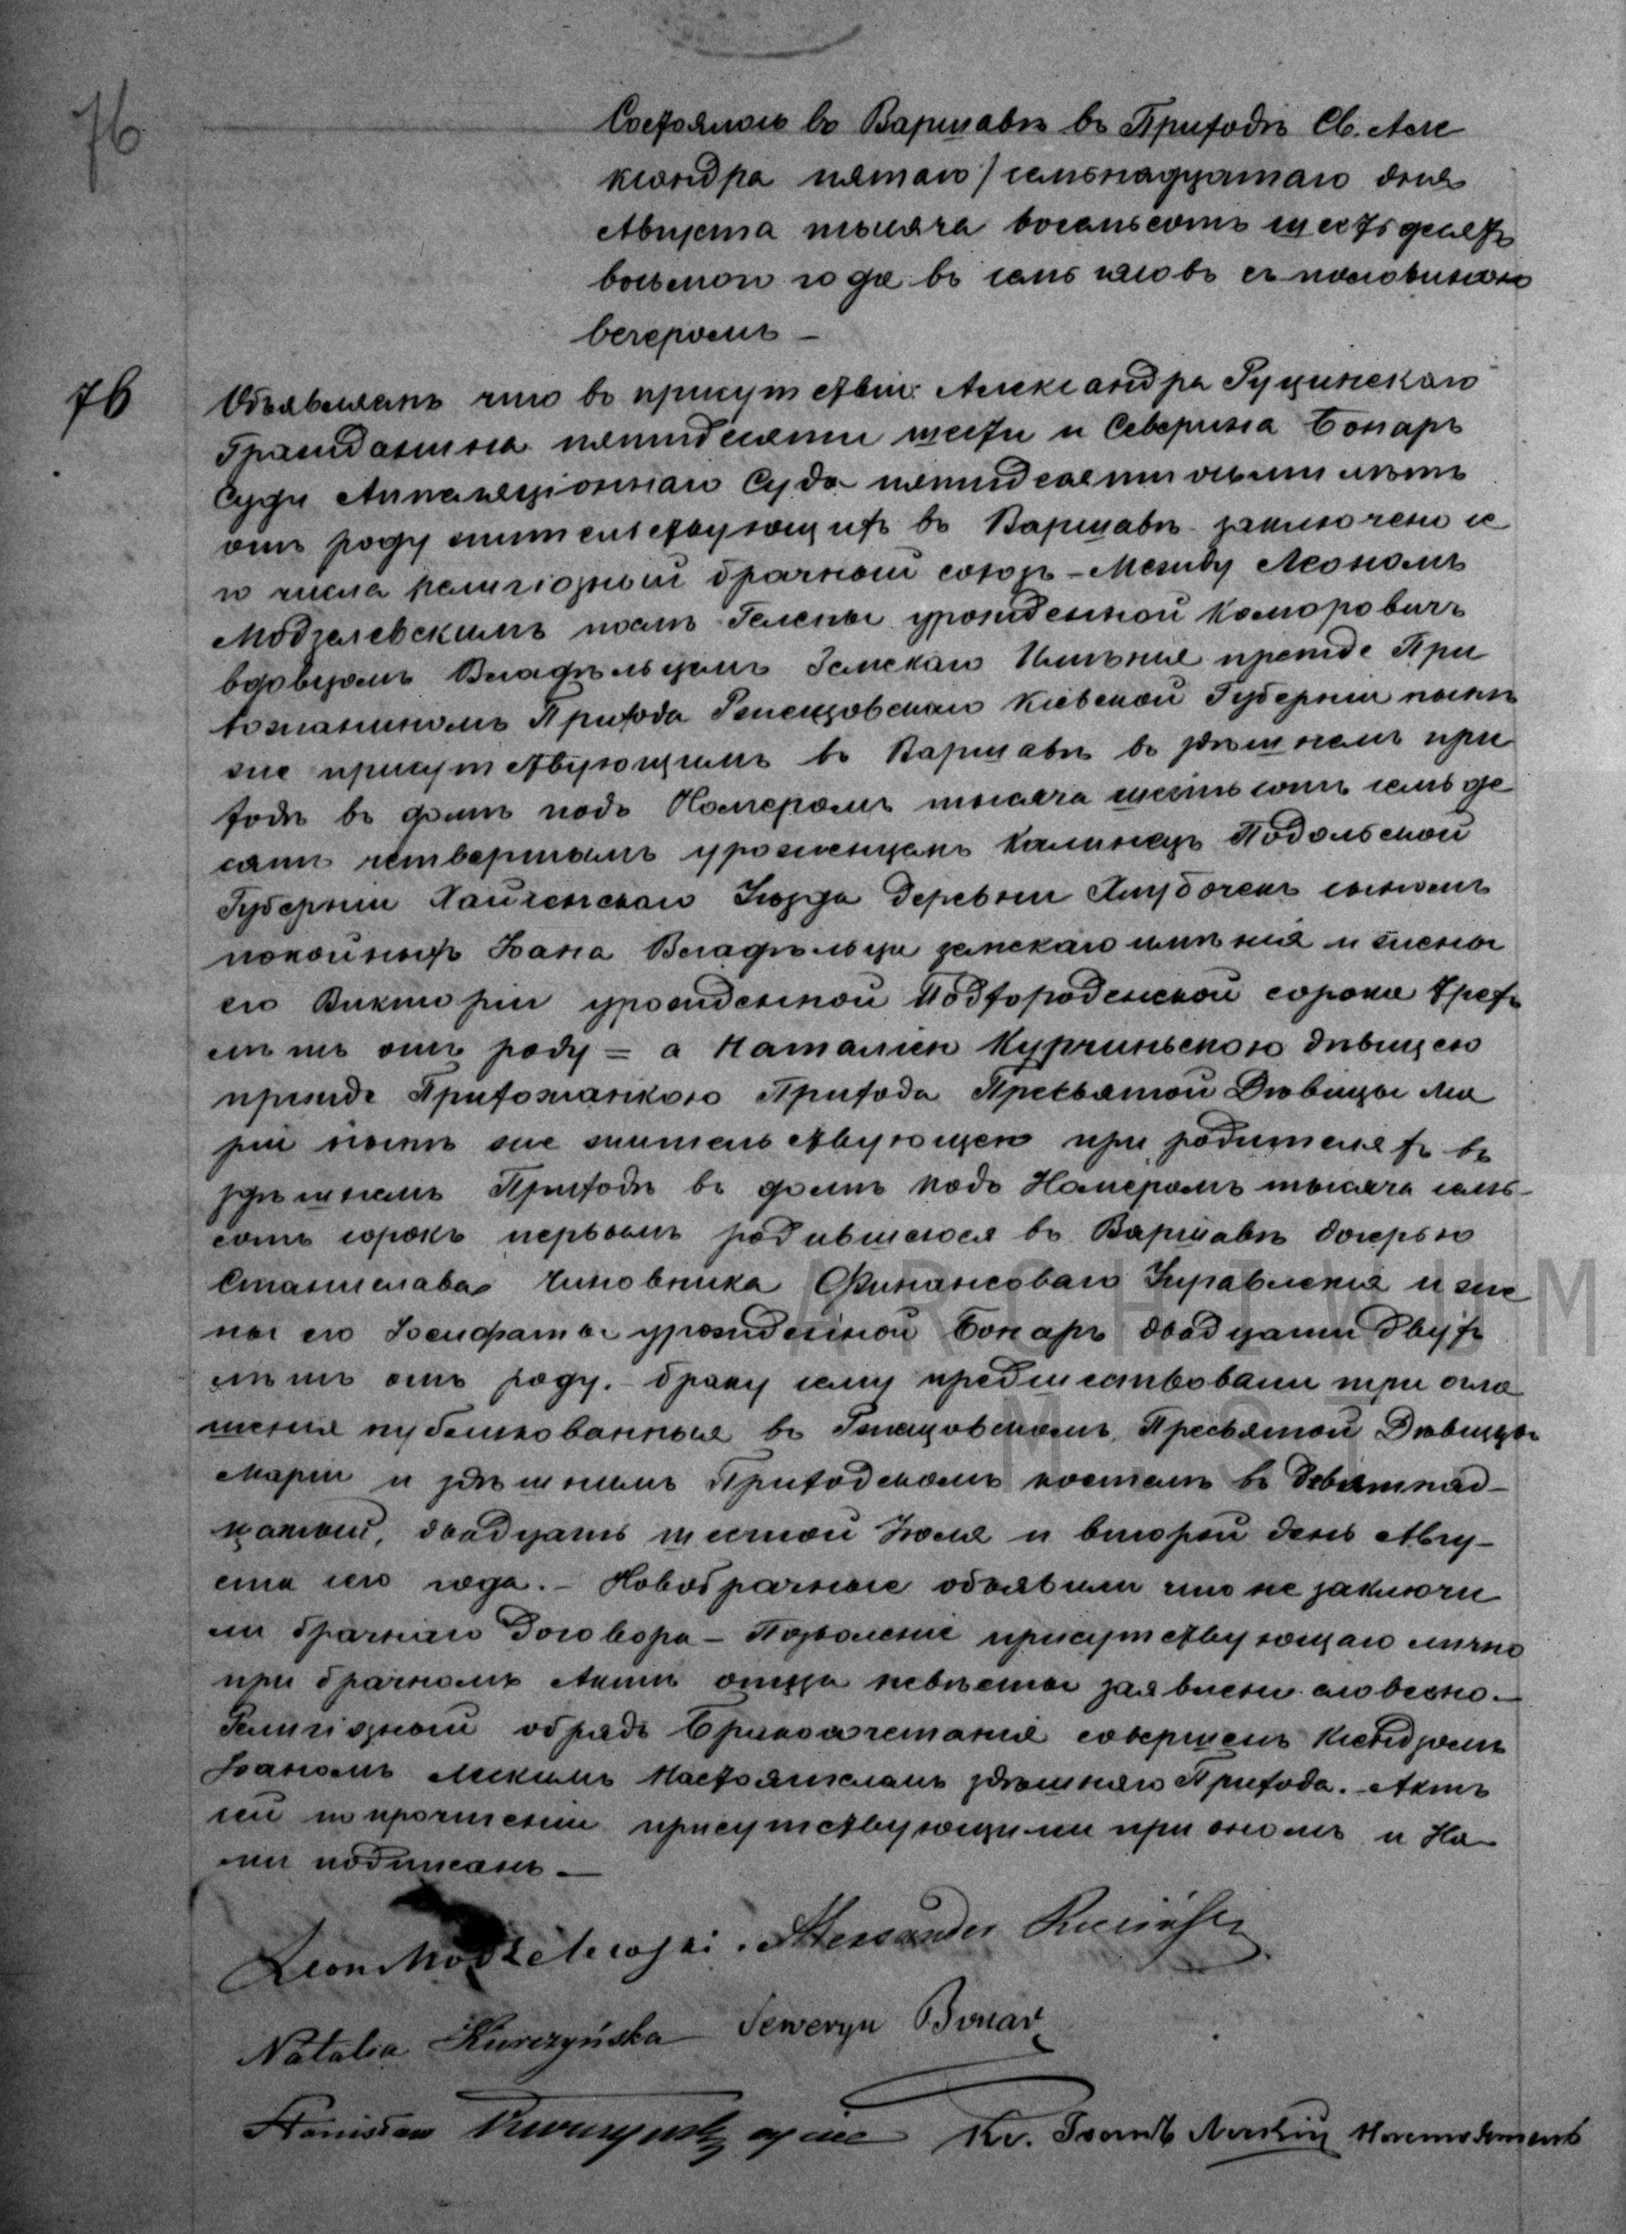 76
Состоялось въ Варшавѣ въ Приходѣ Св. Але
ксандра пятаго / семьнадцатаго дня
Августа тысяча восемьсотъ шестьдесятъ
восьмого года въ семь часовъ съ половиною
вечеромъ —
76
Объявляемъ что въ присутствіи Александра Руцинскаго
Гражданина пятидесяти шести и Северина Бонаръ
Судьи Аппеляціоннаго Суда пятидесяти лѣтъ
отъ роду жительствующихъ въ Варшавѣ заключенъ се
го числа религіозный брачный союзъ – Между Леономъ
Модзелевскимъ послѣ Гелены урожденной Коморовичъ
вдовцомъ Владѣльцемъ Земскаго Имѣнія прежде При
хожаниномъ Прихода Кіевской Губерніи нынѣ
же присутствующимъ въ Варшавѣ въ здѣшнемъ при
ходѣ въ домѣ подъ Номеромъ тысяча шестьсотъ семьде
сятъ четвертымъ уроженцемъ Подольской
Губерніи Уѣзда Деревни сыномъ
покойныхъ Іоана Владѣльца земскаго имѣнія и жены
его Викторіи урожденной Подгороденской сорока трехъ
лѣтъ отъ роду = а Наталіею Курчиньскою дѣвицею
прежде Прихожанкою Прихода Пресвятой Дѣвицы Ма
ріи нынѣ же жительствующею при родителяхъ въ
здѣшнемъ Приходѣ въ домѣ подъ Номеромъ тысяча семь-
сотъ сорокъ первымъ родившеюся въ Варшавѣ дочерью
Станислава Чиновника Финансоваго Управленія и же
ны его Іосифаты урожденной Бонаръ двадцати двухъ
лѣтъ отъ роду. – браку сему предшествовали три огла
шенія публикованныя въ Пресвятой Дѣвицы
Маріи и здѣшнемъ Приходскомъ костелѣ въ девятнад-
цатый, двадцать шестой Іюля и второй день Авгу-
ста сего года. – Новобрачные объявили что не заключи
ли брачнаго Договора – Позволеніе присутствующаго лично
при брачномъ Актѣ отца невѣсты заявлено словесно. –
Религіозный обрядъ Бракосочетанія совершенъ Ксендзомъ
Іоаномъ Настоятелемъ здѣшняго Прихода. – Актъ
сей по прочтеніи присутствующими при ономъ и На-
ми подписанъ. —
Leon Modzelewski. Alexander Ruciński
Natalia Kurczyńska Seweryn Bonar
Stanisław Kurczyński ojciec Кс.
ARCHIWUM
M. ST.